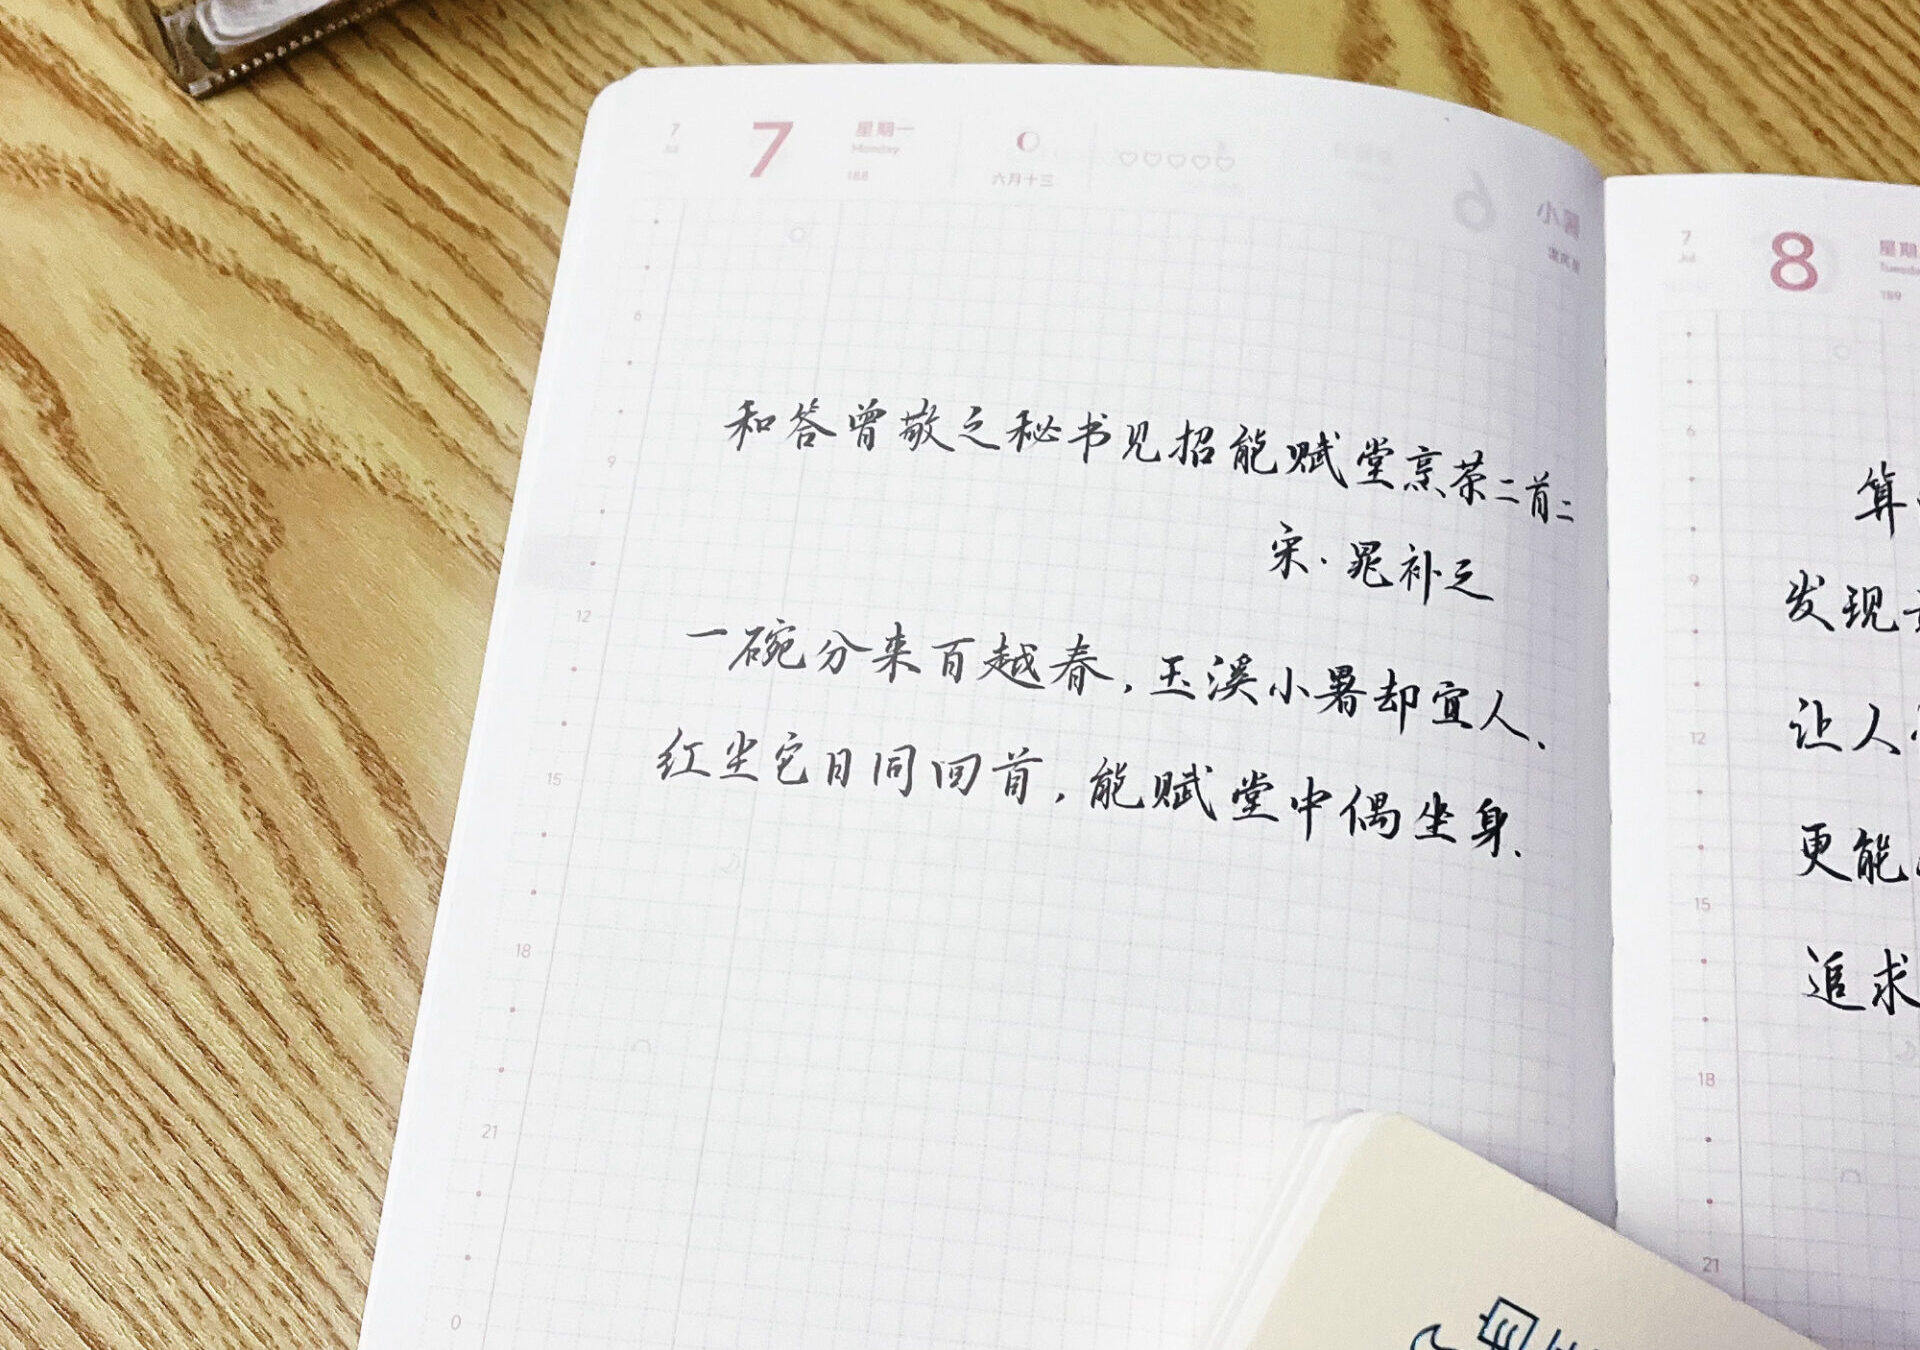 7 Jul 7 星期一 Monday 188 六月十三 小暑
和答曾敬之秘书见招能赋堂烹茶二首二
宋·晁补之
一碗分来百越春，玉溪小暑却宜人．
红尘它日同回首，能赋堂中偶坐身．
6
9
12
15
18
21
0
7 Jul 8 星期 189
算
发现
让人
更能
追求
6
9
12
15
18
21